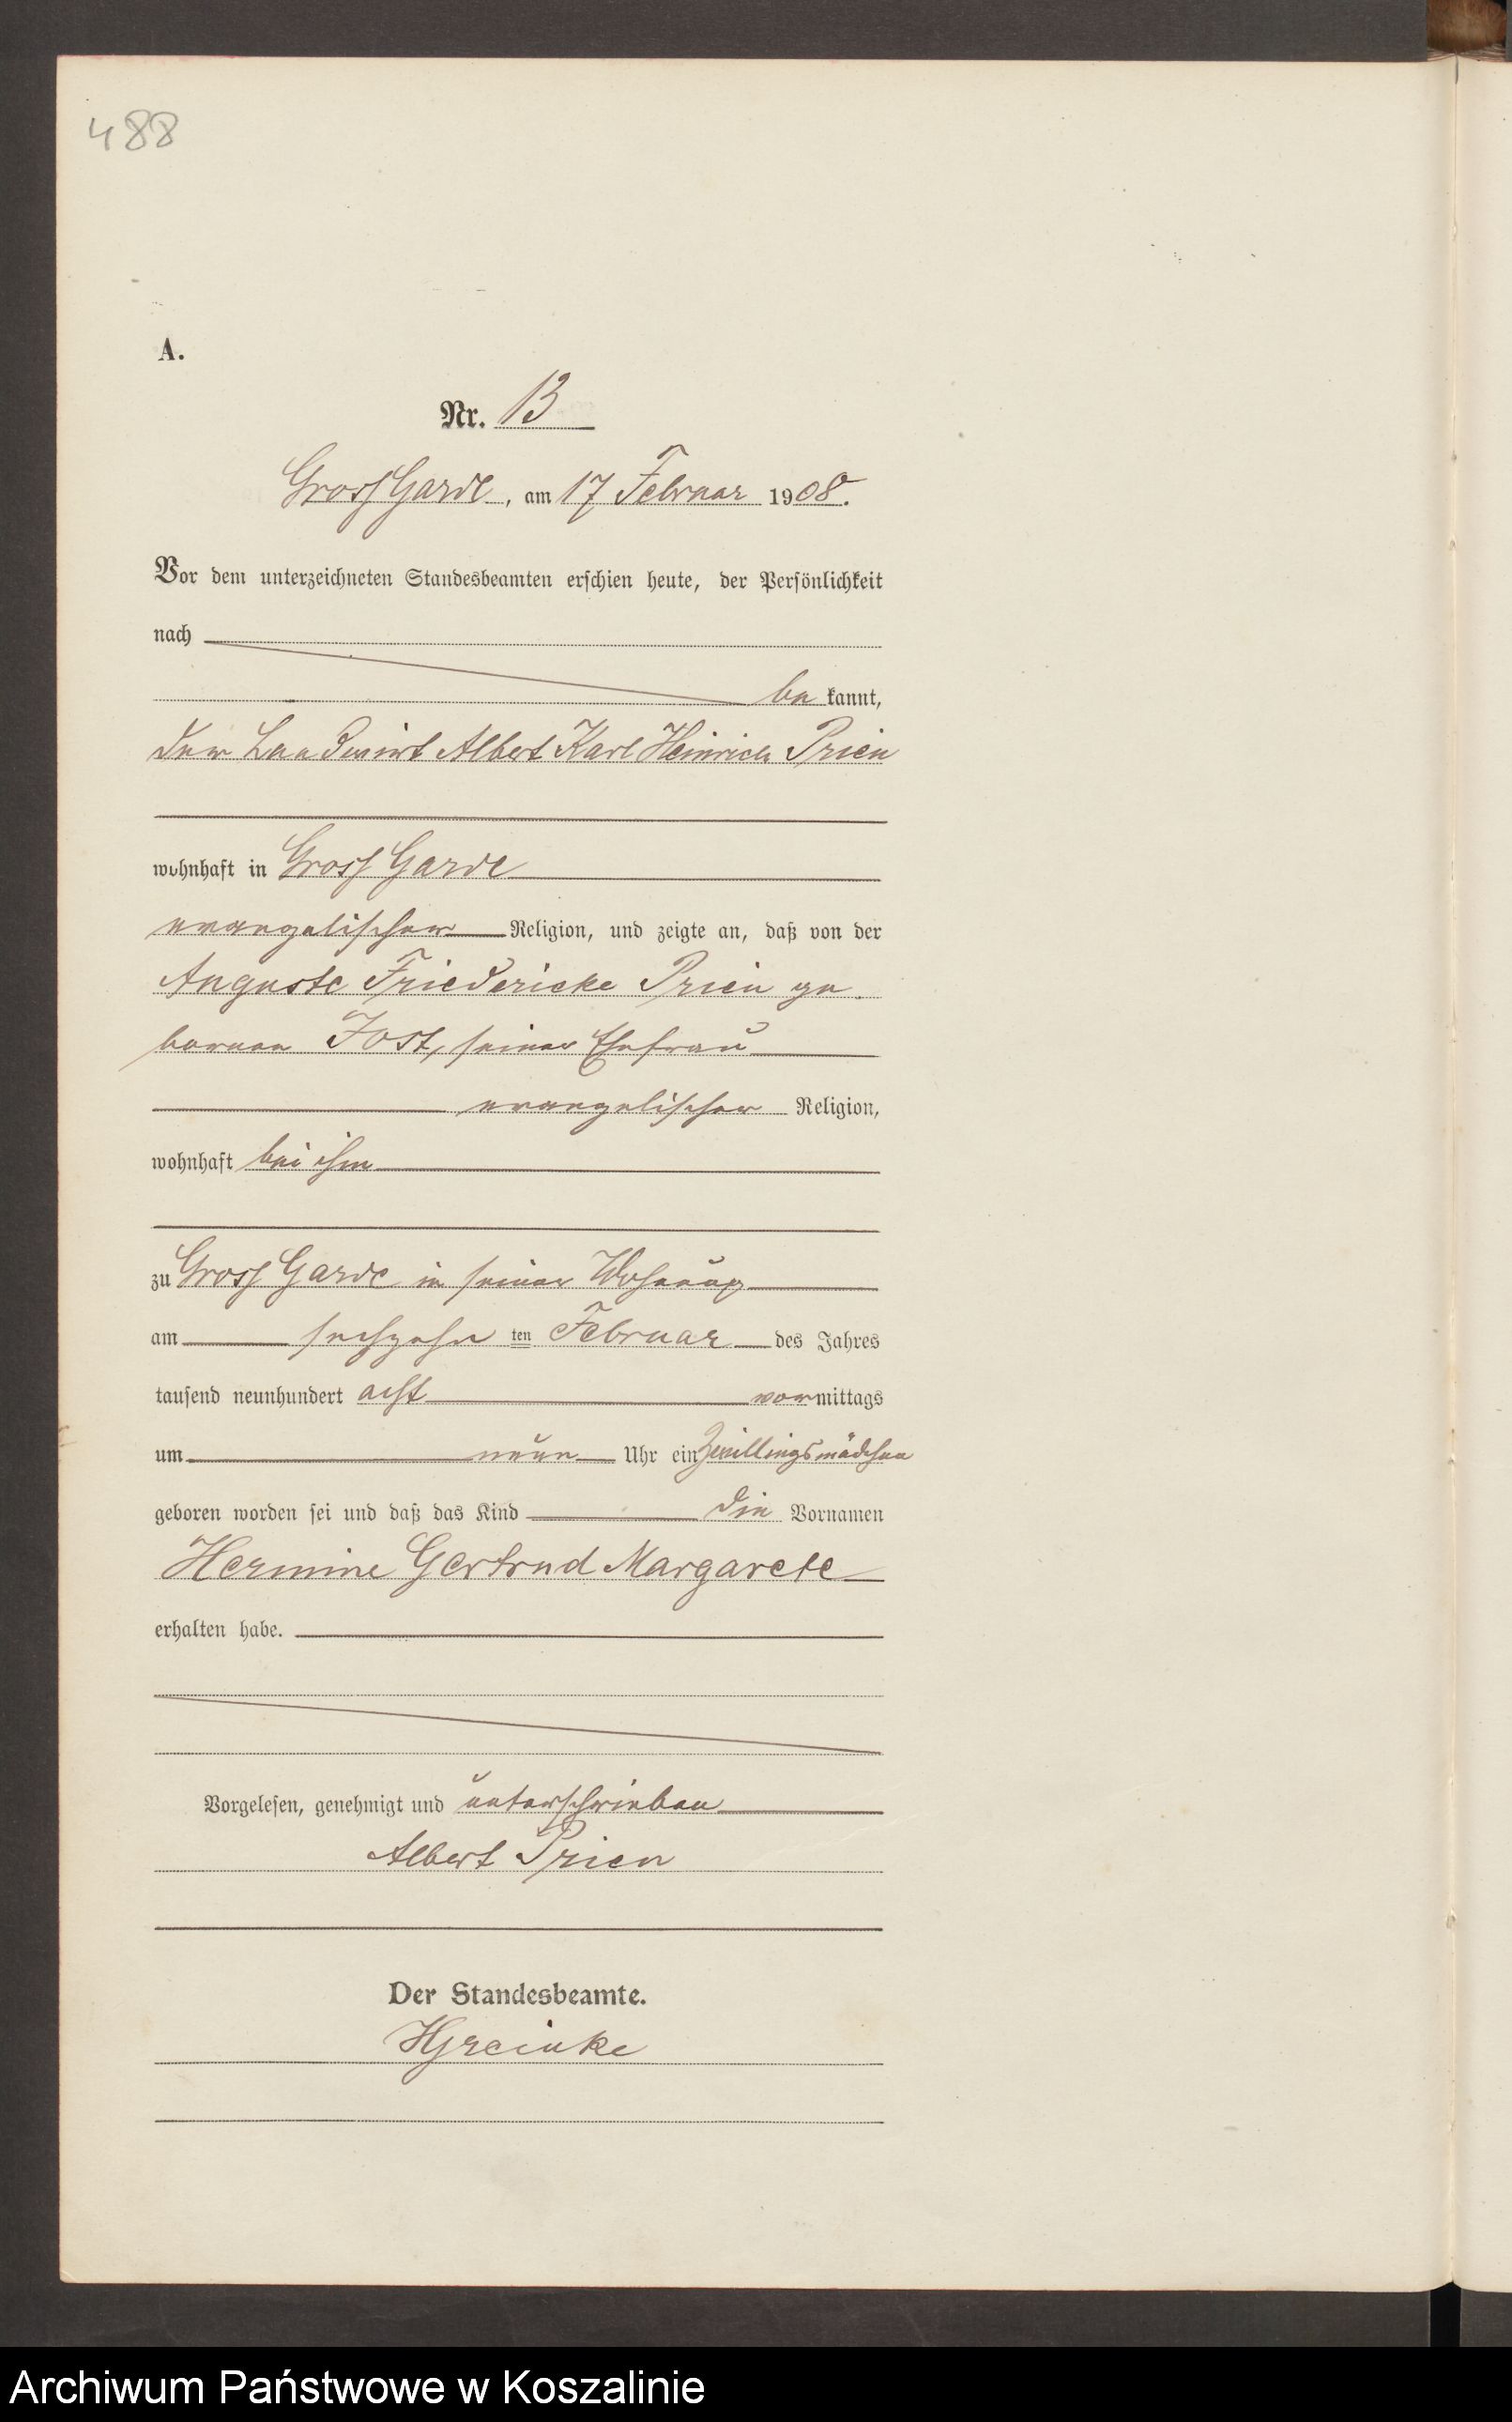 488
A.
Nr. 13
Gross Garde, am 17 Februar 1908.
Vor dem unterzeichneten Standesbeamten erschien heute, der Persönlichkeit
nach
be kannt,
der Landwirt Albert Karl Heinrich Prien
wohnhaft in Gross Garde
evangelischer Religion, und zeigte an, daß von der
Auguste Friedericke Prien ge
borenen Jost, seiner Ehefrau
evangelischer Religion,
wohnhaft bei ihm
zu Gross Garde in seiner Wohnung
am sechzehn ten Februar des Jahres
tausend neunhundert acht vormittags
um neun Uhr ein Zwillingsmädchen
geboren worden sei und daß das Kind die Vornamen
Hermine Gertrud Margarete
erhalten habe.
Vorgelesen, genehmigt und unterschrieben
Albert Prien
Der Standesbeamte.
Archiwum Państwowe w Koszalinie